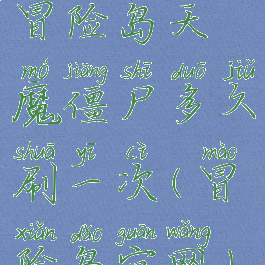 冒险岛天
mó jiāng shī duō jiǔ
魔僵尸多久
shuā yī cì mào
刷一次(冒
xiǎn dǎo guān wǎng
险岛官网)